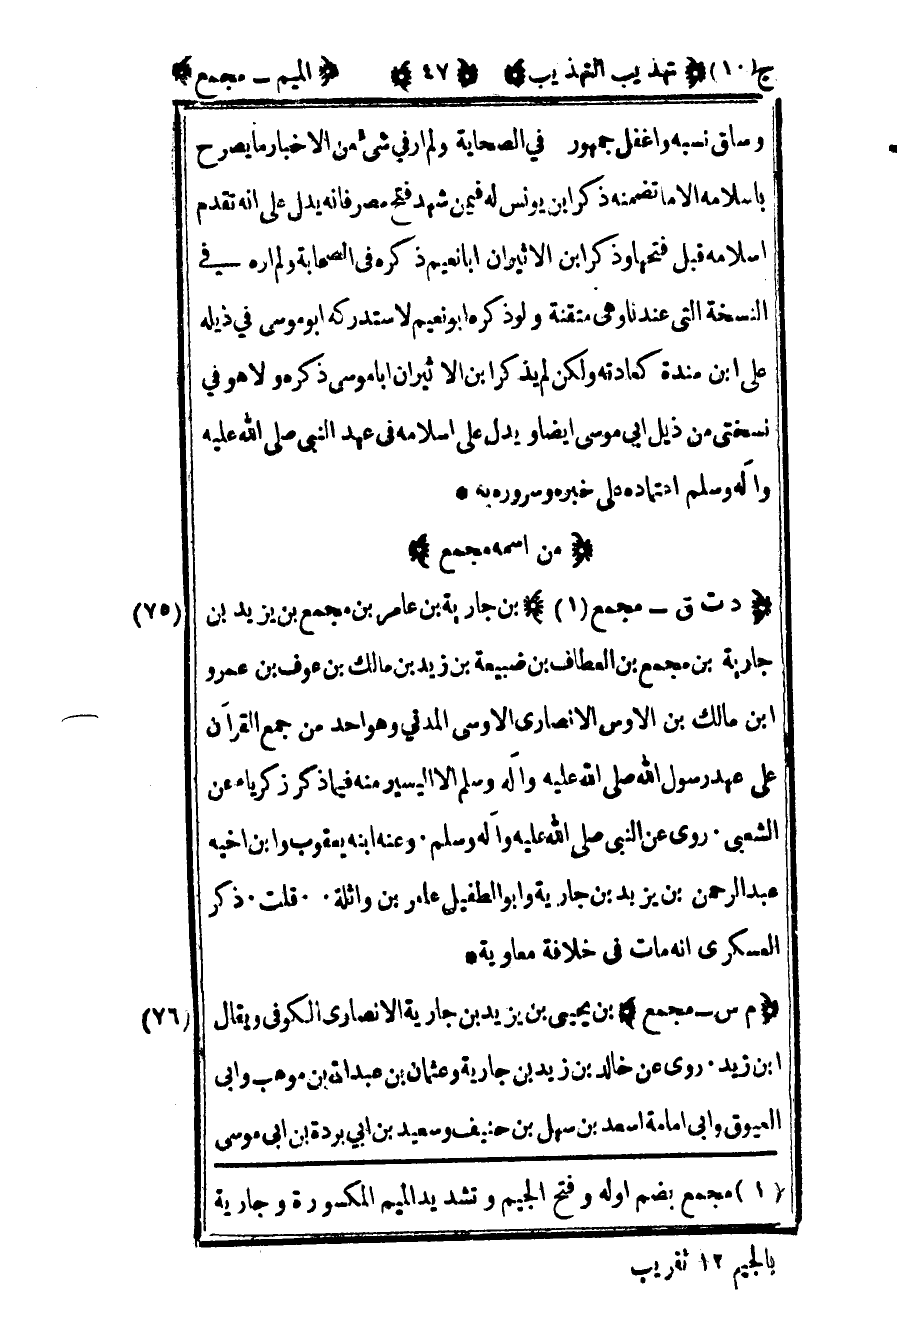 ج(١٠) ﴿ تهذيب التهذيب ﴾ ﴿ ٤٧ ﴾ ﴿ الميم ــ مجمع ﴾
وساق نسبه واغفل جمهور في الصحابة ولم ار في شئ من الاخبار ما يصرح
باسلامه الا ما تضمنه ذكر ابن يونس له فيمن شهد فتح مصر فانه يدل على انه تقدم
اسلامه قبل فتحها وذكر ابن الاثير ان ابا نعيم ذكره فى الصحابة ولم اره ــ في
النسخة التى عندنا وهى متقنة ولو ذكره ابو نعيم لاستدركه ابو موسى في ذيله
على ابن مندة كعادته ولكن لم يذكر ابن الاثير ان ابا موسى ذكره ولا هو في
نسختى من ذيل ابي موسى ايضا ويدل على اسلامه فى عهد النبى صلى الله عليه
وآله وسلم اعتماده على خبره وسروره به *
﴿ من اسمه مجمع ﴾
﴿ د ت ق ــ مجمع (١) ﴾ بن جارية بن عامر بن مجمع بن يزيد بن (٧٥)
جارية بن مجمع بن العطاف بن ضبيعة بن زيد بن مالك بن عوف بن عمرو
ابن مالك بن الاوس الانصارى الاوسى المدني وهو احد من جمع القرآن
على عهد رسول الله صلى الله عليه وآله وسلم الا اليسير منه فيما ذكر زكرياء عن
الشعبى · روى عن النبى صلى الله عليه وآله وسلم · وعنه ابنه يعقوب وابن اخيه
عبد الرحمن بن يزيد بن جارية وابو الطفيل عامر بن واثلة · · قلت · ذكر
العسكرى انه مات فى خلافة معاوية *
﴿ م س ــ مجمع ﴾ بن يحيى بن يزيد بن جارية الانصارى الكوفى ويقال (٧٦)
ابن زيد · روى عن خالد بن زيد بن جارية وعثمان بن عبد الله بن موهب وابى
العيوق وابى امامة اسعد بن سهل بن حنيف وسعيد بن ابي بردة بن ابى موسى
(١) مجمع بضم اوله وفتح الجيم وتشديد الميم المكسورة وجارية
بالجيم ١٢ تقريب